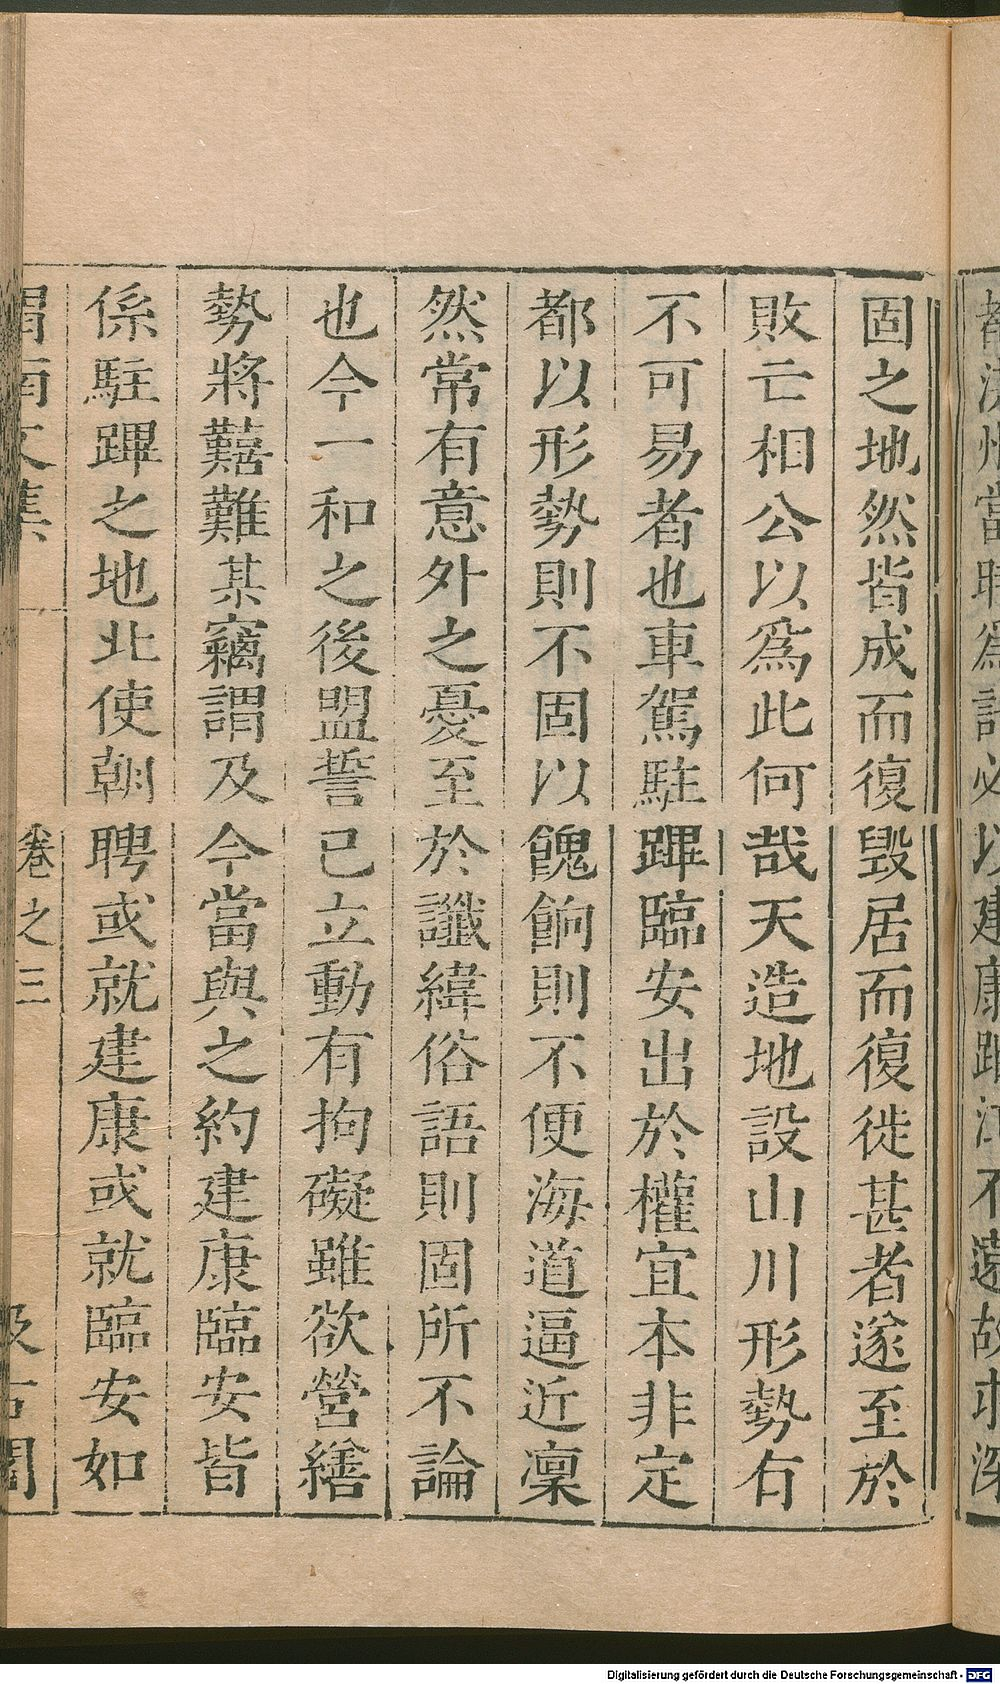 固之地然皆成而復毀居而復徙甚者遂至於
敗亡相公以為此何哉天造地設山川形勢有
不可易者也車駕駐蹕臨安出於權宜本非定
都以形勢則不固以餽餉則不便海道逼近凜
然常有意外之憂至於讖緯俗語則固所不論
也今一和之後盟誓已立動有拘礙雖欲營繕
勢將艱難某竊謂及今當與之約建康臨安皆
係駐蹕之地北使朝聘或就建康或就臨安如
渭南文集 卷之三 汲古閣
Digitalisierung gefördert durch die Deutsche Forschungsgemeinschaft - DFG